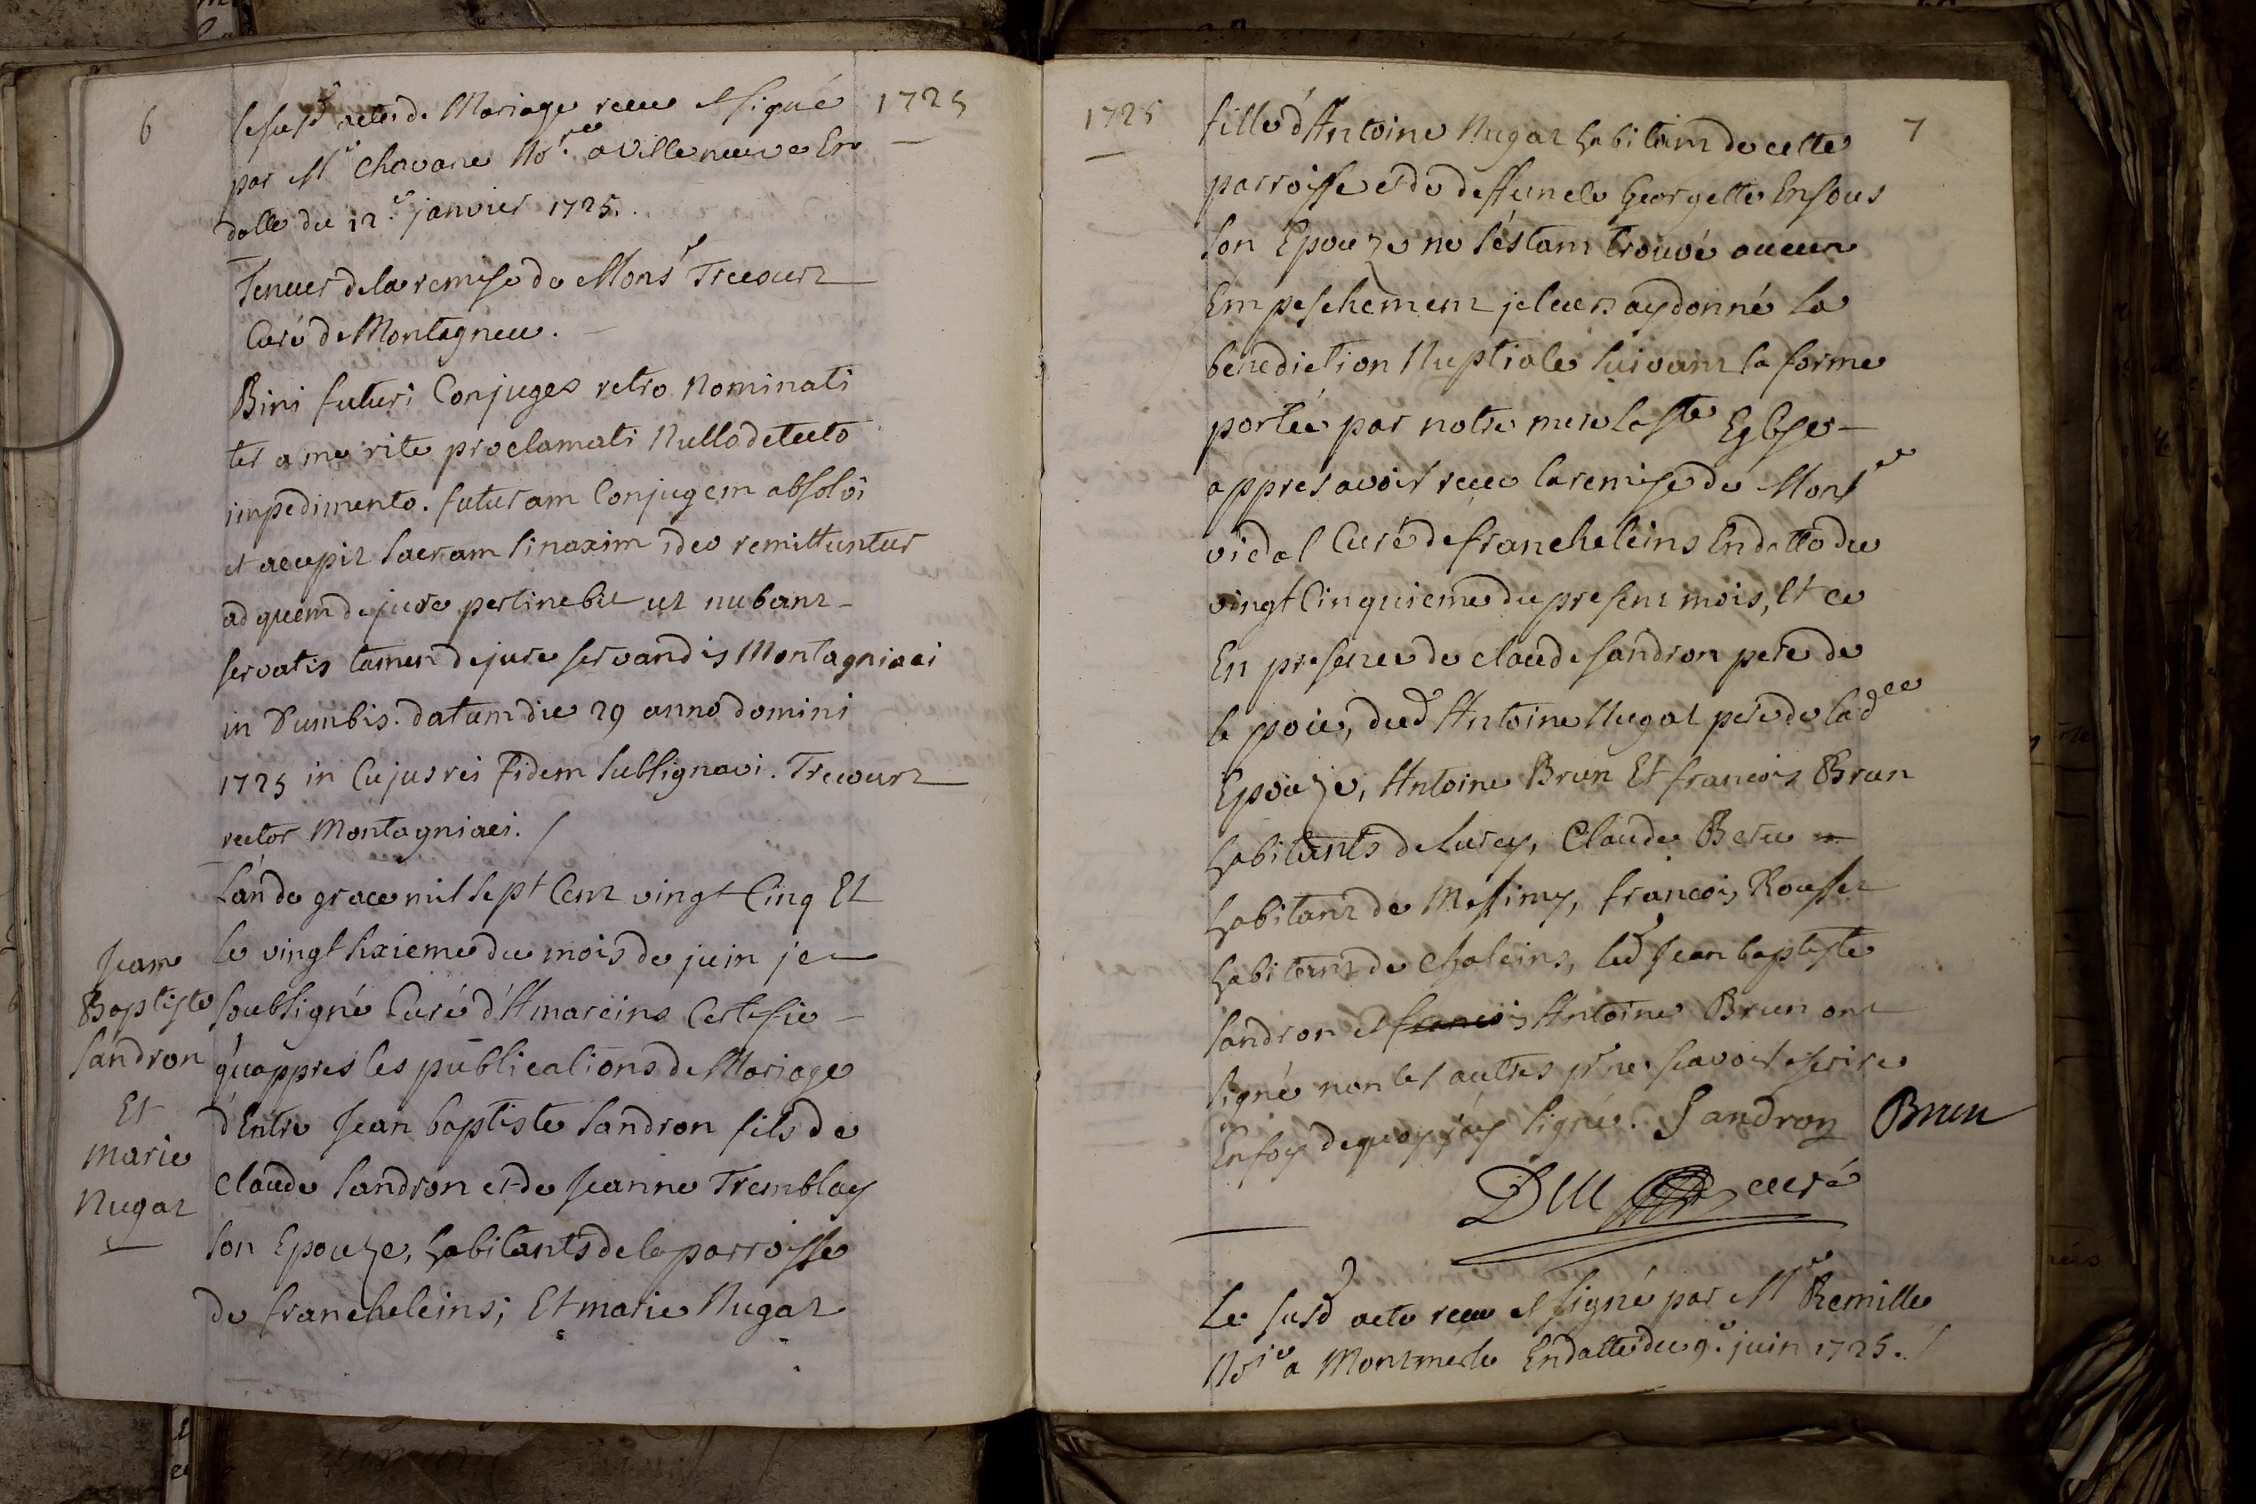 6
1725
Le susd acte de Mariage receu et signé
par Mr Chavane Nore a Villeneuve En
datte du 12e janvier 1725.
Teneur de la remise de Monsr Trecourt
Curé de Montagneu.
Bini futuri Conjuges retro Nominati
ter a me rite proclamati Nullo detecto
impedimento. futuram Conjugem absolvi
et accepit sacram sinaxim ideo remittuntur
ad quem de jure pertinebit ut nubant
servatis tamen de jure servandis Montagniaci
in Dumbis. datum die 29 anno domini
1725 in Cujus rei fidem subsignavi. Trecourt
rector Montagniaci. /
L'an de grace mil sept Cent vingt Cinq Et
le vingt sixieme du mois de juin je
soubsigné Curé d'Amareins Certifie
qu'appres les publications de Mariage
d'Entre Jean baptiste Sandron fils de
Claude Sandron et de Jeanne Tremblay
son Epouze, habitants de la parroisse
de francheleins; Et marie Nugat
Jean
Baptiste
Sandron
Et
Marie
Nugat
1725
7
fille d'Antoine Nugat habitant de cette
parroisse et de deffuncte Georgette Ensous
son Epouze ne s'éstant trouvé aucun
Empeschement je leur ay donné la
benediction Nuptiale suivant la forme
portée par notre mere la Ste Eglise
appres avoir receu la remise de Monsr
vidal Curé de francheleins En datte du
vingt Cinquieme du present mois, Et ce
En presence de claude sandron pere de
le poux, dud Antoine Nugat pere de lad
Epouze, Antoine Brun Et francois Brun
habitants de Lurcy, Claude Beru
habitant de Messimy, francois Rousset
habitant de Chaleins, led Jean baptiste
Sandron et francois Antoine Brun ont
signé non les autres pr ne scavoir escrire
En foy de quoy j'ay signé. Sandron Brun
curé
Le susd acte receu et signé par Mr Remille
Nore a Montmerle En datte du 9e juin 1725. /